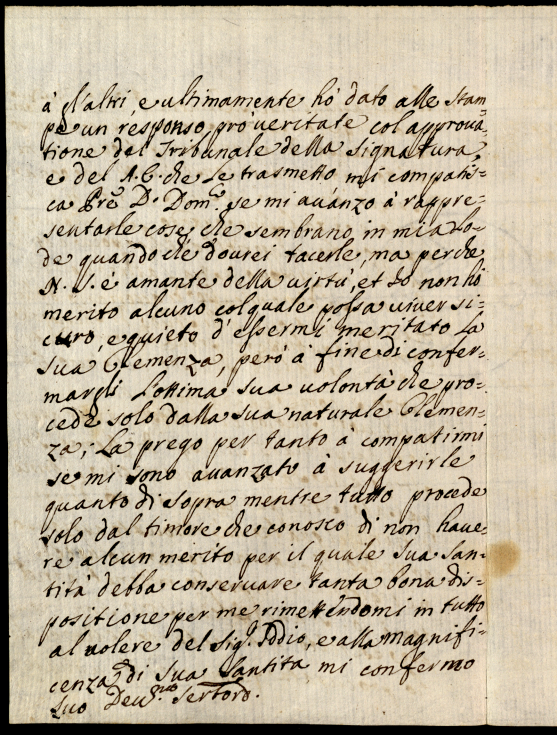 à gl'altri, e ultimamente hò dato alle stam=
pe un responso prò veritate col approva=
tione del Tribunale della Signatura,
e del A.C. che Le trasmetto mi compatis=
ca Pre D. Dom.co se mi avánzo à rappre=
sentarle cose, che sembrano in mia Lo=
de quando che dourei tacerle, ma perche
N. S. è amante della virtù, et Io non hò
merito alcuno col quale possa viver si=
curo, e quieto d'essermi meritato La
sua Clemenza, però à fine di confer=
margli L'ottima sua volontà che pro=
cede solo dalla sua naturale Clemen=
za; La prego per tanto à compatirmi
se mi sono avanzato à suggerirle
quanto di sopra mentre tutto procede
solo dal timore che conosco di non have=
re alcun merito per il quale Sua San=
tità debba conservare tanta bona dis=
positione per me rimettendomi in tutto
al volere del Sig.r Iddio, e alla magnifi=
cenza di Sua Santità mi confermo
Suo Deu.mo Ser.